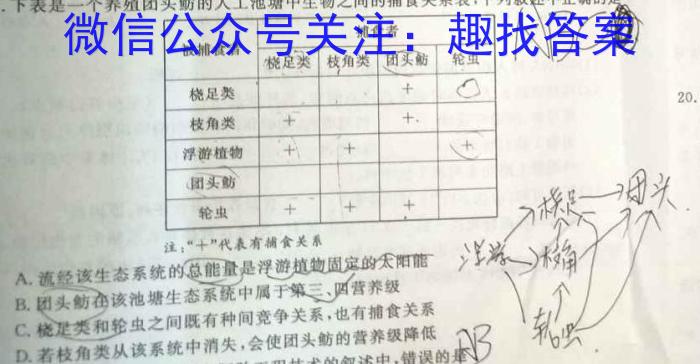 .下表是一个养殖团头鲂的人工池塘中生物之间的捕食关系表,下列叙述不正确的是
微信公众号关注：趣找答案
被捕食者 捕食者
桡足类 枝角类 团头鲂 轮虫
桡足类 +
枝角类 + +
浮游植物 + + +
团头鲂
轮虫 + + +
注:“+”代表有捕食关系
A. 流经该生态系统的总能量是浮游植物固定的太阳能
B. 团头鲂在该池塘生态系统中属于第三、四营养级
C. 桡足类和轮虫之间既有种间竞争关系,也有捕食关系
D. 若枝角类从该系统中消失,会使团头鲂的营养级降低
工程技术的叙述中,错误的是
20.
桡足 团头
浮游 枝角
轮虫
AB